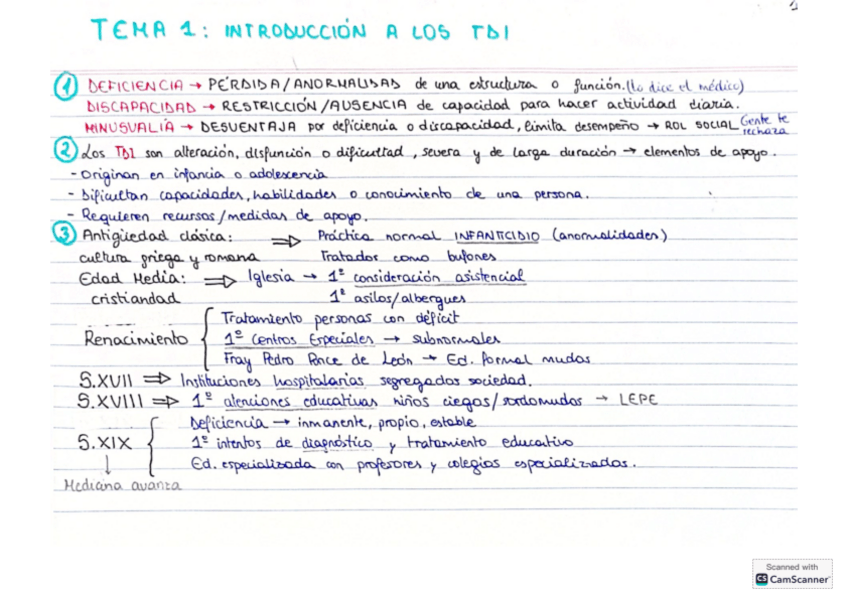 1
TEMA 1: INTRODUCCIÓN A LOS TDI
① DEFICIENCIA → PÉRDIDA/ANORMALIDAD de una estructura o función. (lo dice el médico)
DISCAPACIDAD → RESTRICCIÓN/AUSENCIA de capacidad para hacer actividad diaria.
MINUSUALÍA → DESVENTAJA por deficiencia o discapacidad, limita desempeño → ROL SOCIAL Gente te rechaza
② Los TDI son alteración, disfunción o dificultad, severa y de larga duración → elementos de apoyo.
- Originan en infancia o adolescencia
- Dificultan capacidades, habilidades o conocimiento de una persona.
- Requieren recursos/medidas de apoyo.
③ Antigüedad clásica: ⇒ Práctica normal INFANTICIDIO (anomalidades)
cultura griega y romana Tratador como bufones
Edad Media: ⇒ Iglesia → 1ª consideración asistencial
cristiandad 1ª asilos/albergues
Renacimiento { Tratamiento personas con déficit
1º Centros Especiales → subnormales
Fray Pedro Ponce de León → Ed. formal mudos
S.XVII ⇒ Instituciones hospitalarias segregados sociedad.
S.XVIII ⇒ 1º atenciones educativas niños ciegos/sordomudos → LEPE
S.XIX { Deficiencia → inmanente, propio, estable
1º intentos de diagnóstico y tratamiento educativo
Ed. especializada con profesores y colegios especializados.
↓
Medicina avanza
Scanned with
CS CamScanner